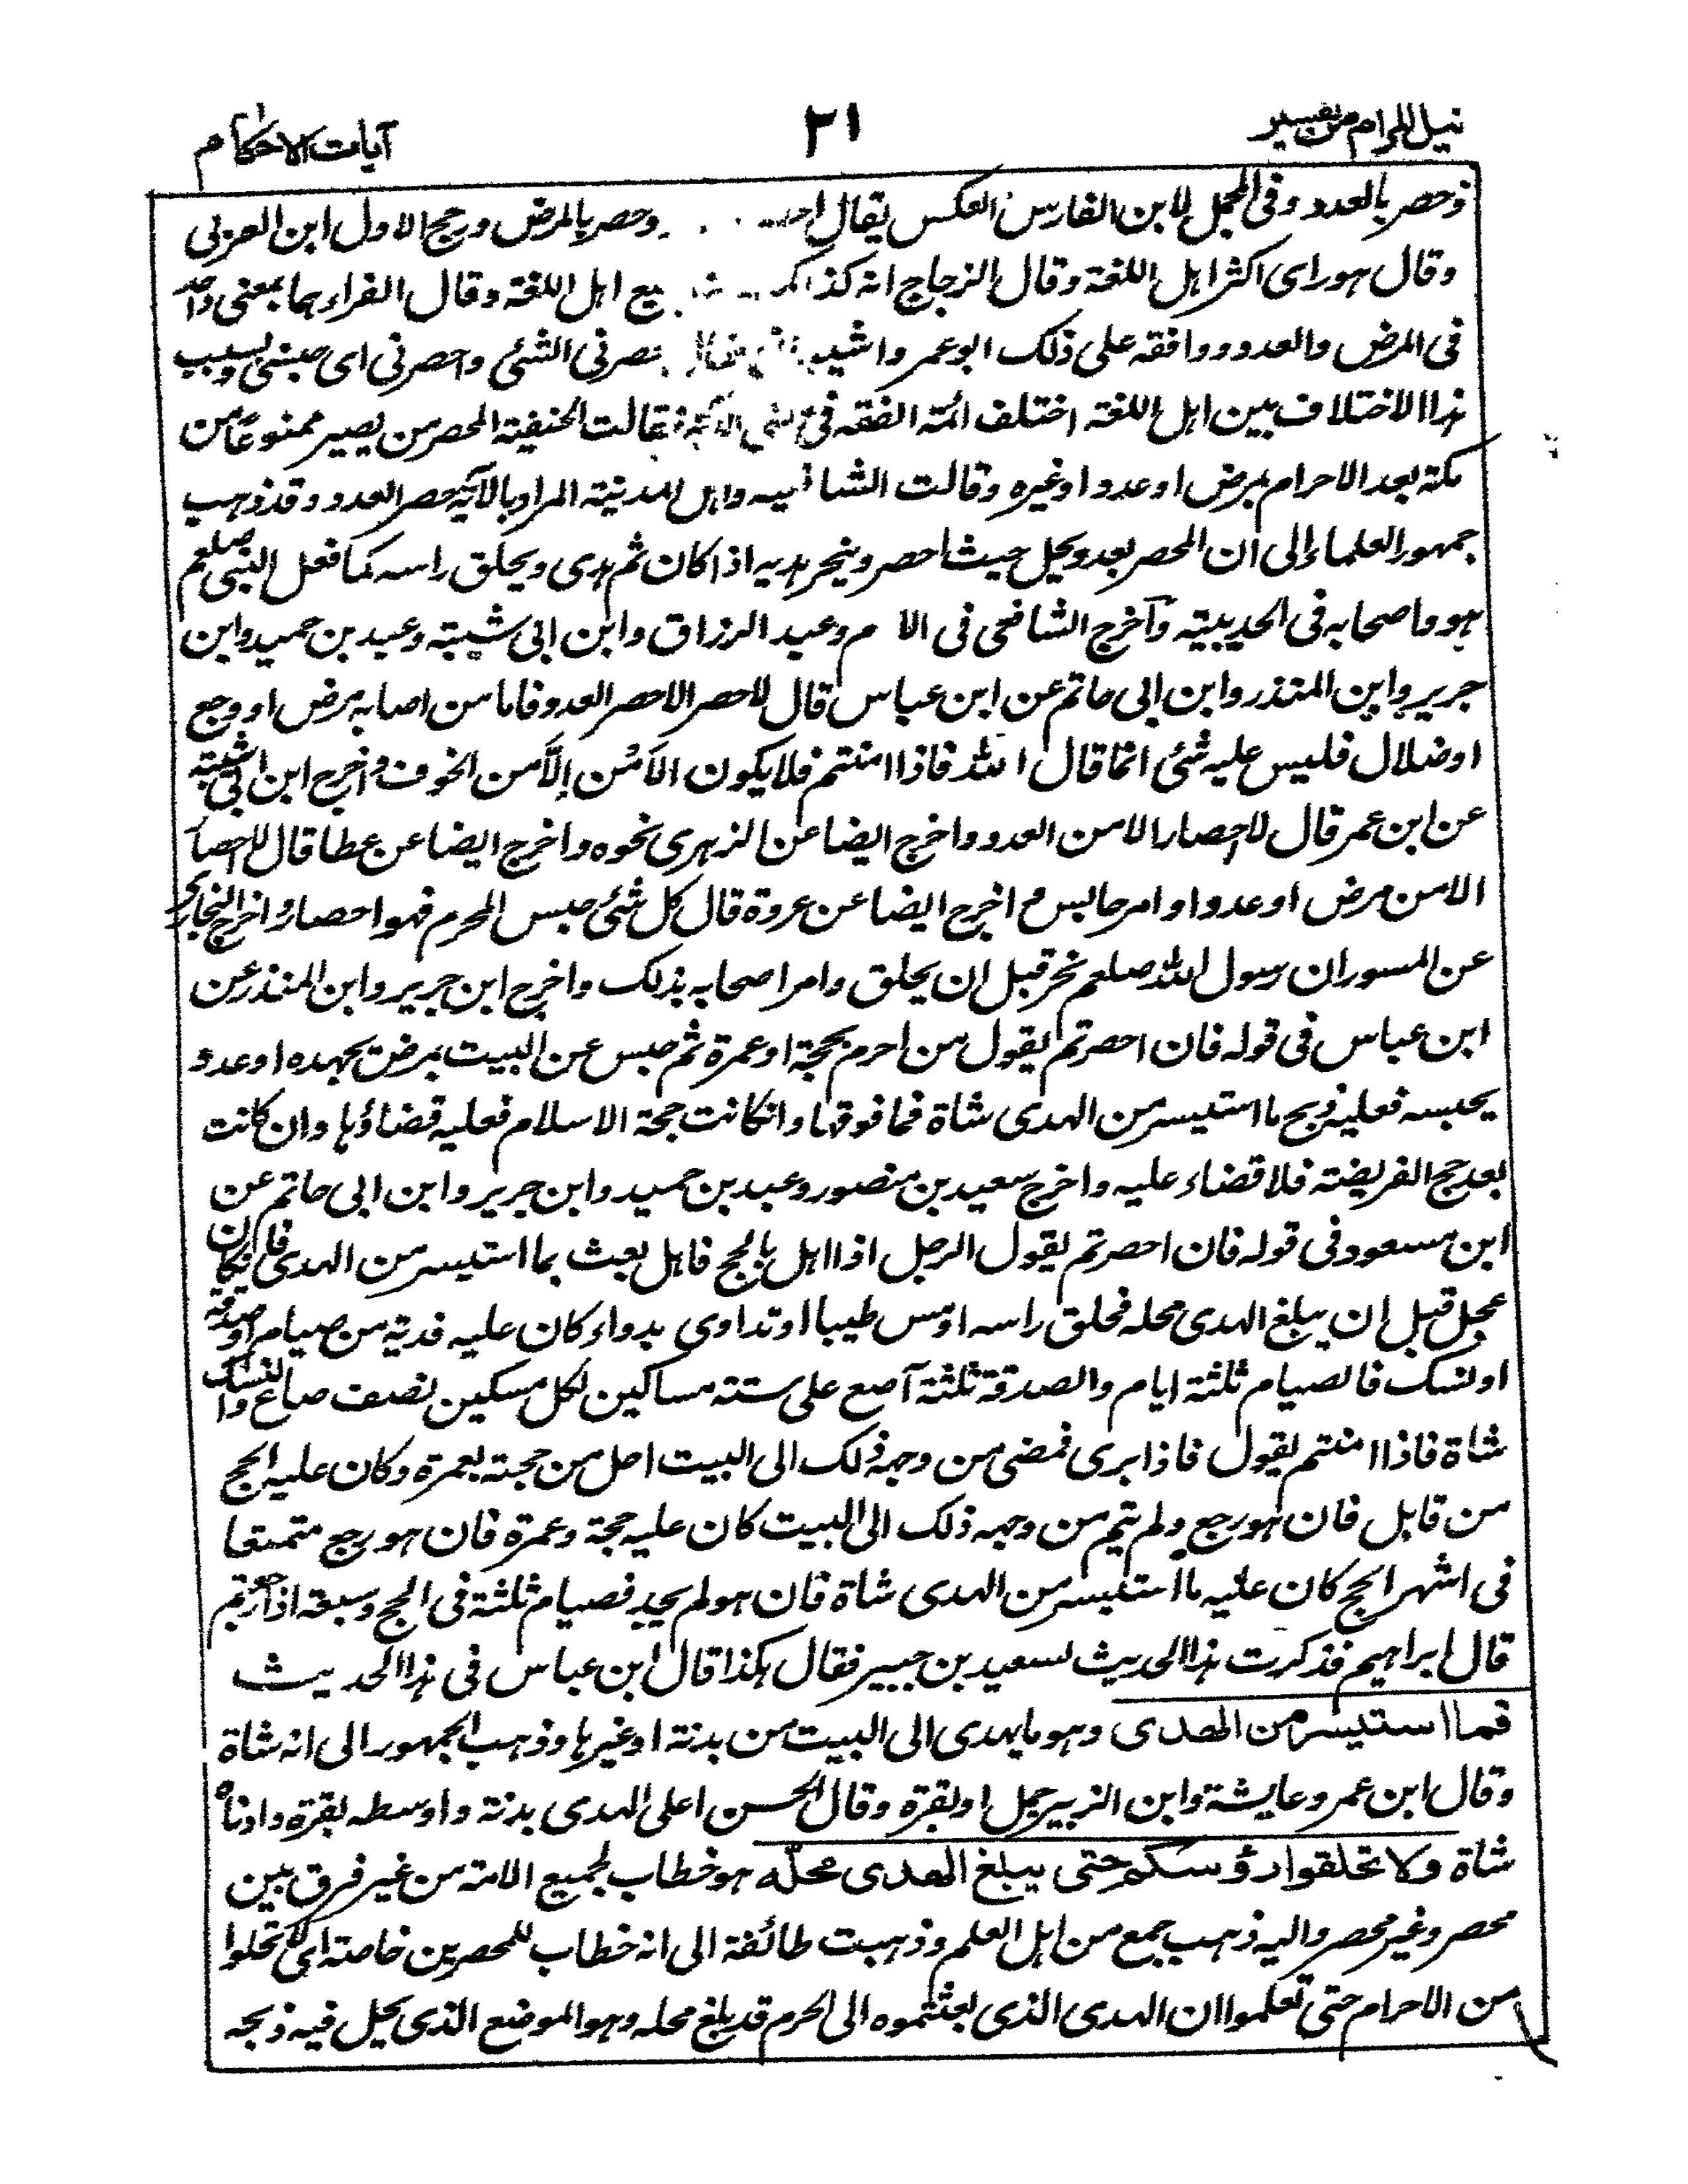 نيل المرام من تفسير
٣١
آيات الاحكام
وحصر بالعدد وفى المجمل لابن الفارس العكس يقال وحصر بالمرض ورجح الاول ابن العربي
وقال هوراى اكثر اهل اللغة وقال الزجاج انه كذا اهل اللغة وقال الفراء هما بمعنى واحد
فى المرض والعدو ووافقه على ذلك ابو عمر واشيب نصرنى الشئى واحصرنى اى حبسنى وبسبب
هذا الاختلاف بين اهل اللغة اختلف ائمة الفقه فى فقالت الحنفية المحصر من يصير ممنوعا من
مكة بعد الاحرام بمرض او عدو او غيره وقالت واهل المدينة المراد بالآية حصر العدو وقد ذهب
جمهور العلماء الى ان المحصر بعدو يحل حيث احصر وينحر هديه اذا كان ثم هدى ويحلق راسه كما فعل النبى صلعم
هو واصحابه فى الحديبية وآخرج الشافعى فى الام وعبد الرزاق وابن ابى شيبة وعبد بن حميد وابن
جرير وابن المنذر وابن ابى حاتم عن ابن عباس قال لاحصر الاحصر العدو فاما من اصابه مرض او وجع
او ضلال فليس عليه شئى انما قال الله فاذا امنتم فلا يكون الامن الا من الخوف واخرج ابن ابى شيبة
عن ابن عمر قال لا احصار الا من العدو واخرج ايضا عن الزهرى نحوه واخرج ايضا عن عطا قال لا احصار
الا من مرض او عدو او امر حابس واخرج ايضا عن عروة قال كل شئى حبس المحرم فهو احصار واخرج البخارى
عن المسور ان رسول الله صلعم نحر قبل ان يحلق وامر اصحابه بذلك واخرج ابن جرير وابن المنذر عن
ابن عباس فى قوله فان احصرتم يقول من احرم بحجة او عمرة ثم حبس عن البيت بمرض يجهده او عدو
يحبسه فعليه ذبح ما استيسر من الهدى شاة فما فوقها وانكانت حجة الاسلام فعليه قضاؤها وان كانت
بعد حج الفريضة فلا قضاء عليه واخرج سعيد بن منصور وعبد بن حميد وابن جرير وابن ابى حاتم عن
ابن مسعود فى قوله فان احصرتم يقول الرجل اذا اهل بالحج فاهل بعث بما استيسر من الهدى فان كان
عجل قبل ان يبلغ الهدى محله فحلق راسه او مس طيبا او تداوى بدواء كان عليه فدية من صيام او صدقة
او نسك فالصيام ثلثة ايام والصدقة ثلثة آصع على ستة مساكين لكل مسكين نصف صاع والنسك
شاة فاذا امنتم يقول فاذا برى فمضى من وجهه ذلك الى البيت احل من حجته بعمرة وكان عليه الحج
من قابل فان هو رجع ولم يتم من وجهه ذلك الى البيت كان عليه حجة وعمرة فان هو رجع متمتعا
فى اشهر الحج كان عليه ما استيسر من الهدى شاة فان هو لم يجد فصيام ثلثة فى الحج وسبعة اذا رجعتم
قال ابراهيم فذكرت هذا الحديث لسعيد بن جبير فقال هكذا قال ابن عباس فى هذا الحديث
فما استيسر من الهدى وهو ما يهدى الى البيت من بدنة او غيرها وذهب الجمهور الى انه شاة
وقال ابن عمر وعايشة وابن الزبير جمل او بقرة وقال الحسن اعلى الهدى بدنة واوسطه بقرة وادناه
شاة ولا تحلقوا رؤسكم حتى يبلغ الهدى محله هو خطاب لجميع الامة من غير فرق بين
محصر وغير محصر واليه ذهب جمع من اهل العلم وذهبت طائفة الى انه خطاب للمحصرين خاصة اى لا تحلوا
من الاحرام حتى تعلموا ان الهدى الذى بعثتموه الى الحرم قد بلغ محله وهو الموضع الذى يحل فيه ذبحه